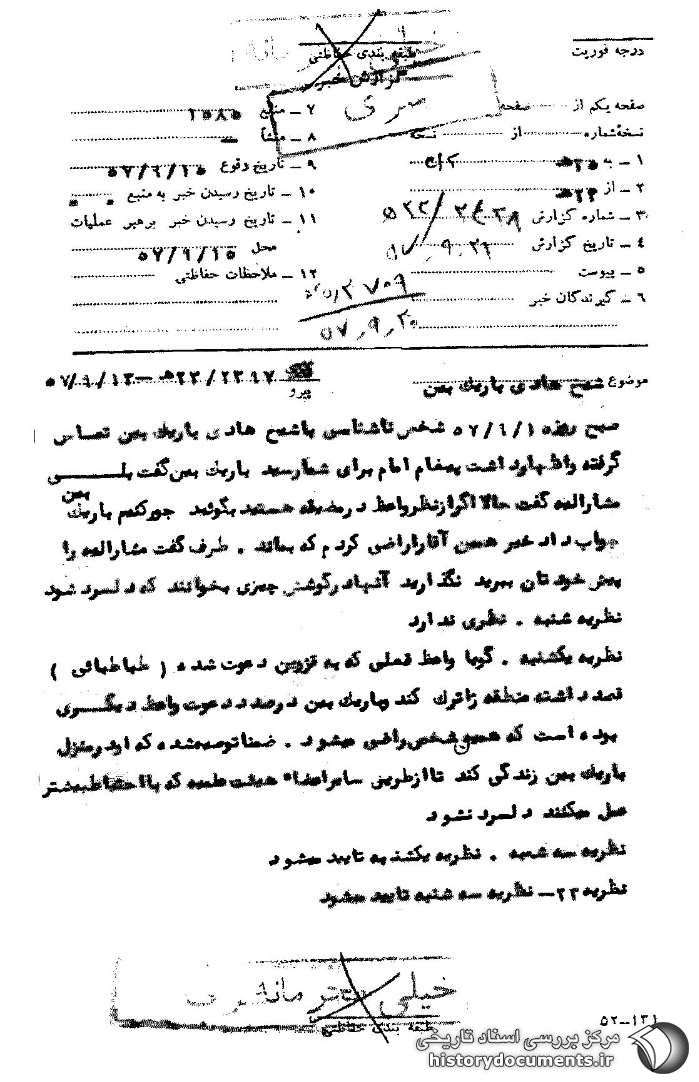 خیلی محرمانه
درجه فوریت
طبقه بندی حفاظتی
گزارش خبر
سری
صفحه یکم از صفحه
نسخه شماره از نسخه
۱ ـ به ۲۵هـ ک‍ ۲
۲ ـ از ۲۳هـ
۳ ـ شماره گزارش
۴ ـ تاریخ گزارش ۵۷٫۹٫۲۶
۵ ـ پیوست
۶ ـ گیرندگان خبر
۷ ـ منبع ۱۵۸۵
۸ ـ منشأ ـ
۹ ـ تاریخ وقوع ۵۷/۹/۱۵
۱۰ ـ تاریخ رسیدن خبر به منبع
۱۱ ـ تاریخ رسیدن خبر برهبر عملیات
محل ۵۷/۹/۱۵
۱۲ ـ ملاحظات حفاظتی
۵۷٫۹٫۳۰
موضوع شیخ هادی باریک بین
پیرو ۲۳۹۷/۲۳هـ ـ ۵۷/۹/۱۳
صبح روز ۵۷/۹/۱۵ شخص ناشناسی باشیخ هادی باریک بین تماس
گرفته واظهارداشت پیغام امام برای شما رسید باریک بین گفت بلـــی
مشارالیه گفت حالا اگر از نظر واعظ در مضیقه هستید بگوئید جور کنیم باریک بین
جواب داد خیر همین آقا را راضی کردم که بماند . طرف گفت مشارالیه را
پیش خودتان ببرید نگذارید آنها در گوشش چیزی بخوانند که دلسرد شود
نظریه شنبه . نظری ندارد
نظریه یکشنبه . گویا واعظ قبلی که به قزوین دعوت شده ( طباطبائی )
قصد داشته منطقه را ترک کند وباریک بین درصدد دعوت واعظ دیگـــری
بوده است که همین شخص راضی میشود . ضمنا توصیه شده که او در منزل
باریک بین زندگی کند تا از طریق سایر اعضاء هیئت علمیه که با احتیاط بیشتر
عمل میکنند دلسرد نشود
نظریه سه شنبه . نظریه یکشنبه تایید میشود
نظریه ۲۳ـ نظریه سه شنبه تایید میشود
خیلی محرمانه
طبقه بندی حفاظتی
۵۲ــ۱۳۱
مرکز بررسی اسناد تاریخی
historydocuments.ir